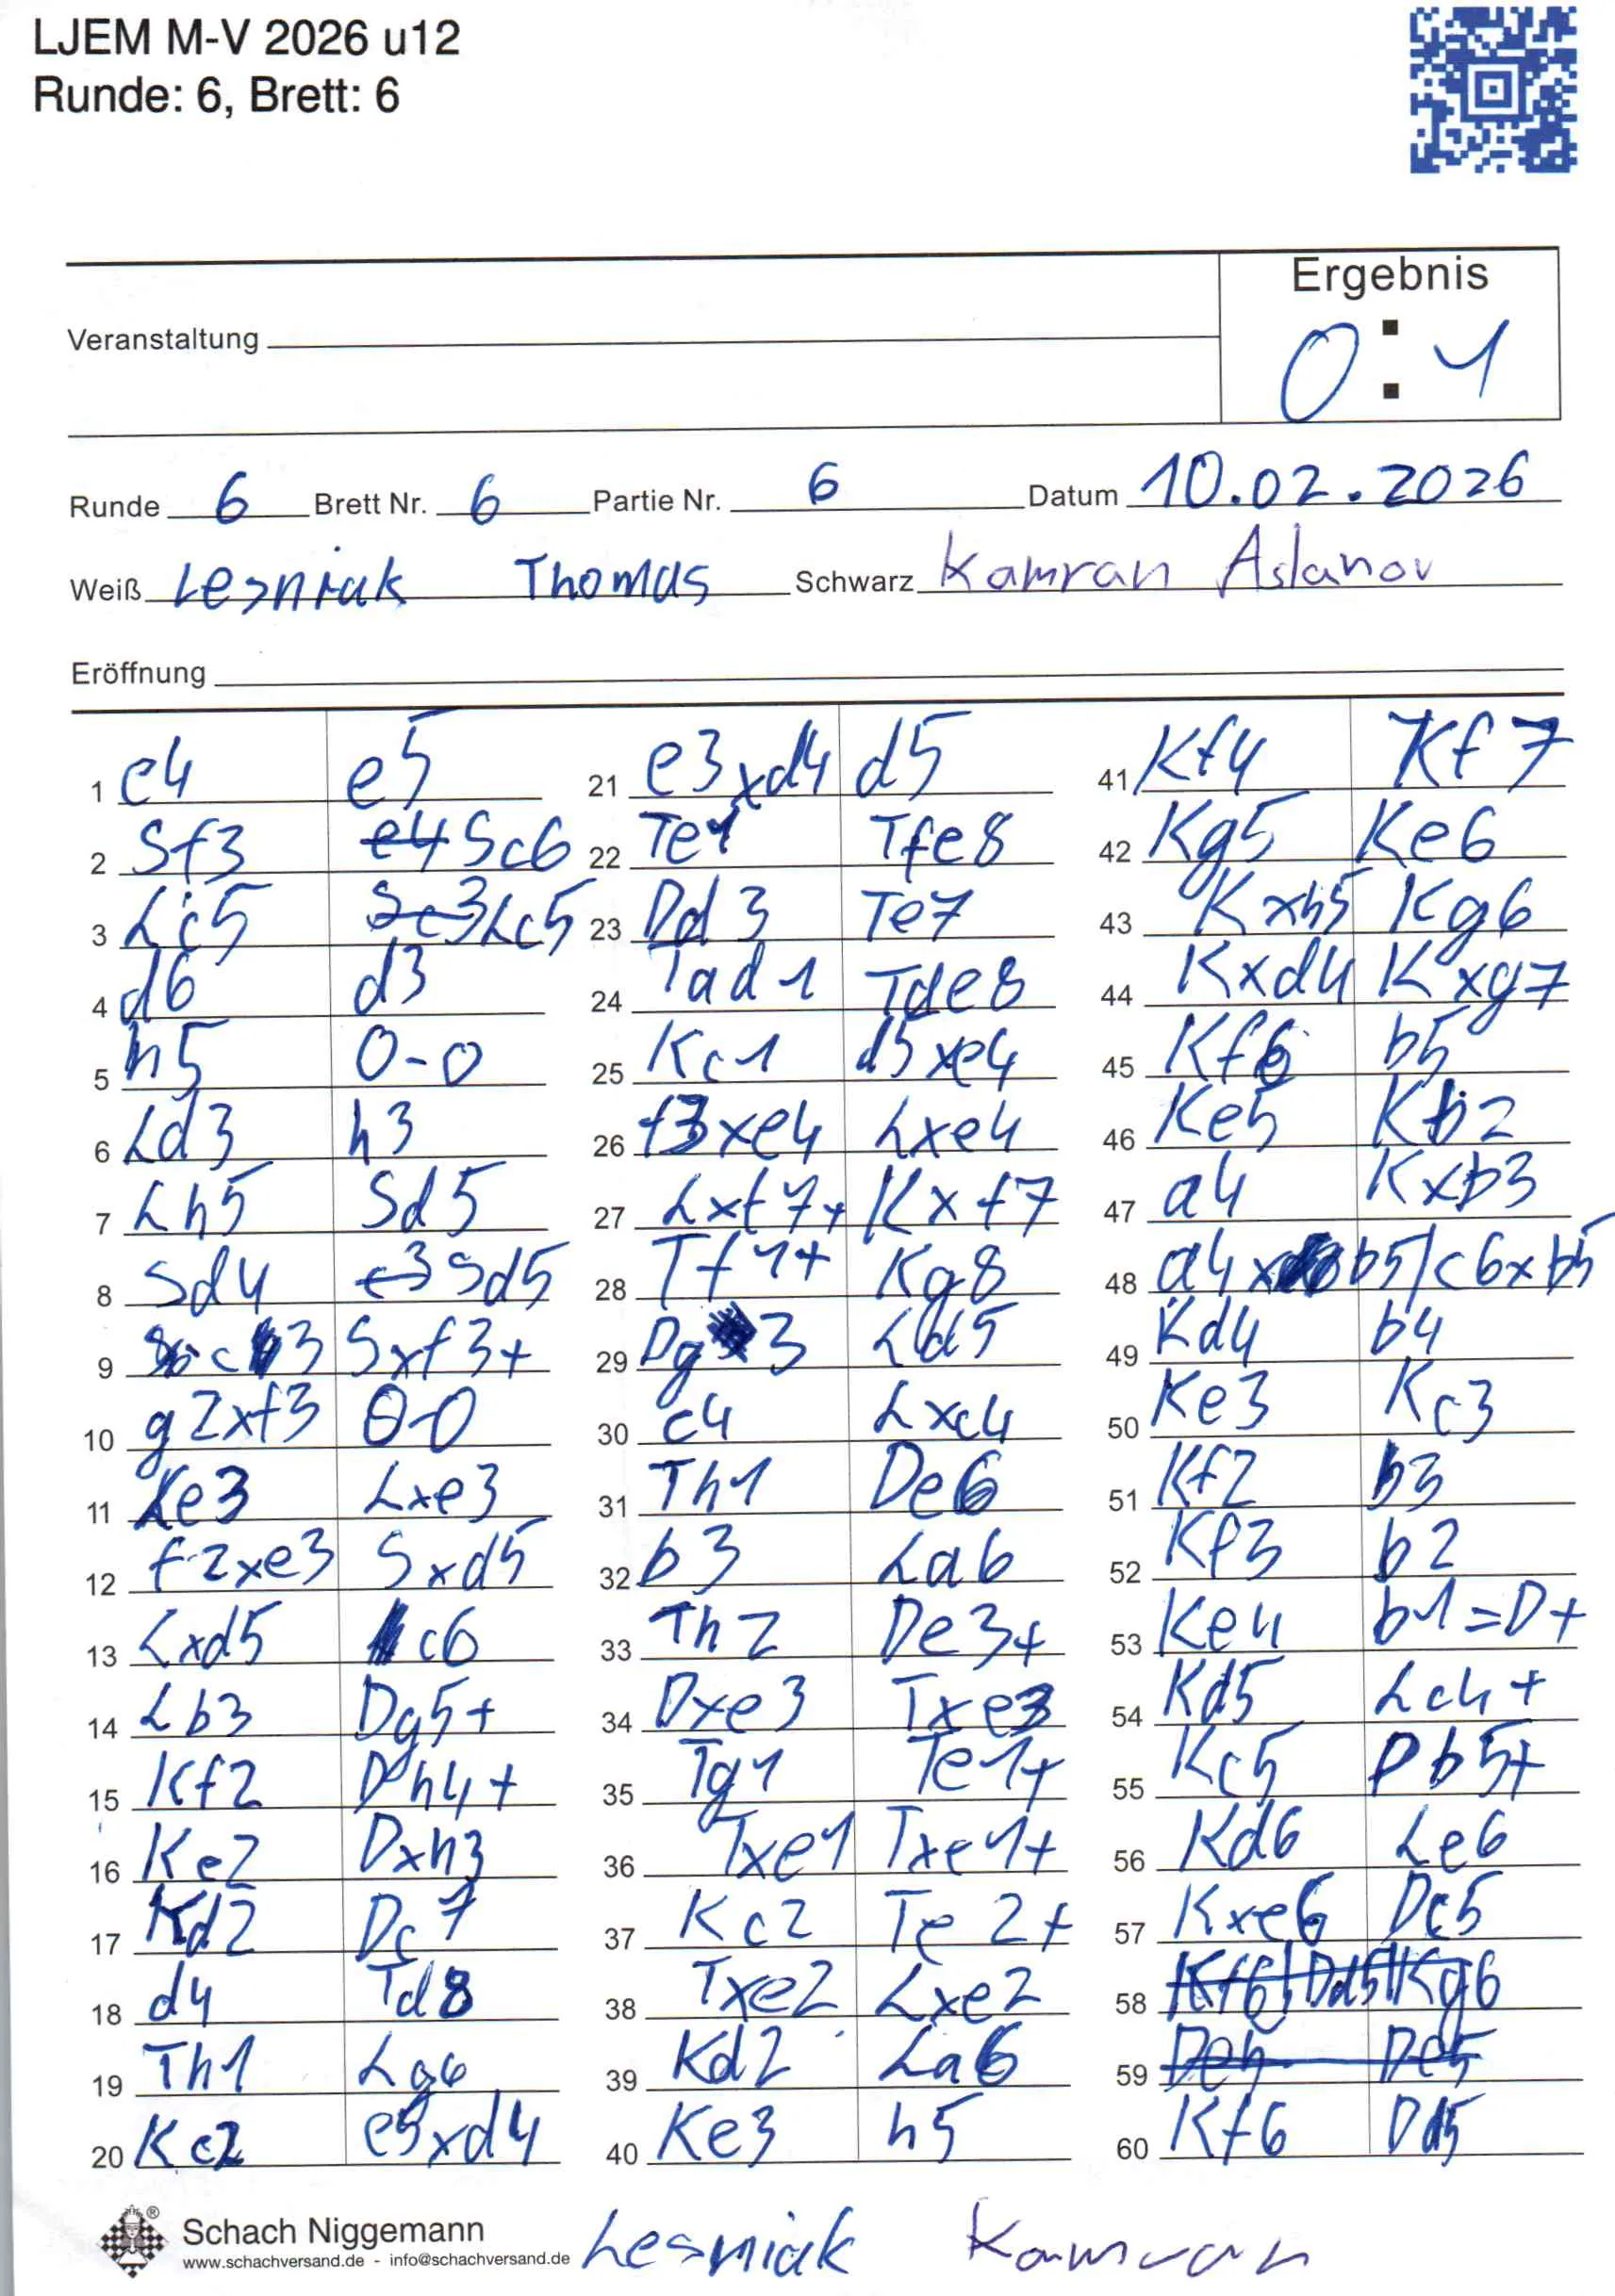 LJEM M-V 2026 u12
Runde: 6, Brett: 6
Ergebnis
0 : 1
Veranstaltung
Runde 6 Brett Nr. 6 Partie Nr. 6 Datum 10.02.2026
Weiß Lesniak Thomas Schwarz Kamran Aslanov
Eröffnung
1 e4 e5
2 Sf3 e4 Sc6
3 Lc5 Sc3 Lc5
4 d6 d3
5 h5 0-0
6 Ld3 h3
7 Lh5 Sd5
8 Sd4 c3 Sd5
9 c3 Sxf3+
10 g2xf3 0-0
11 Le3 Lxe3
12 f2xe3 Sxd5
13 Lxd5 c6
14 Lb3 Dg5+
15 Kf2 Dh4+
16 Ke2 Dxh3
17 Kd2 Dc7
18 d4 Td8
19 Th1 La6
20 Kc2 e5xd4
21 e3xd4 d5
22 Te1 Tfe8
23 Dd3 Te7
24 Tad1 Tde8
25 Kc1 d5xe4
26 f3xe4 Lxe4
27 Lxf7+ Kxf7
28 Tf1+ Kg8
29 Dg3 Ld5
30 c4 Lxc4
31 Th1 De6
32 b3 La6
33 Th2 De3+
34 Dxe3 Txe3
35 Tg1 Te1+
36 Txe1 Txe1+
37 Kc2 Te2+
38 Txe2 Lxe2
39 Kd2 La6
40 Ke3 h5
41 Kf4 Kf7
42 Kg5 Ke6
43 Kxh5 Kg6
44 Kxd4 Kxg7
45 Kf6 b5
46 Ke5 Kb2
47 a4 Kxb3
48 a4x b5 / c6xb5
49 Kd4 b4
50 Ke3 Kc3
51 Kf2 b3
52 Kf3 b2
53 Ke4 b1=D+
54 Kd5 Lc4+
55 Kc5 Db5+
56 Kd6 Le6
57 Kxe6 Dc5
58 Kf6 Dd5 Kg6
59 De5
60 Kf6 Dd5
Schach Niggemann ®
www.schachversand.de - info@schachversand.de
Lesniak Kamran